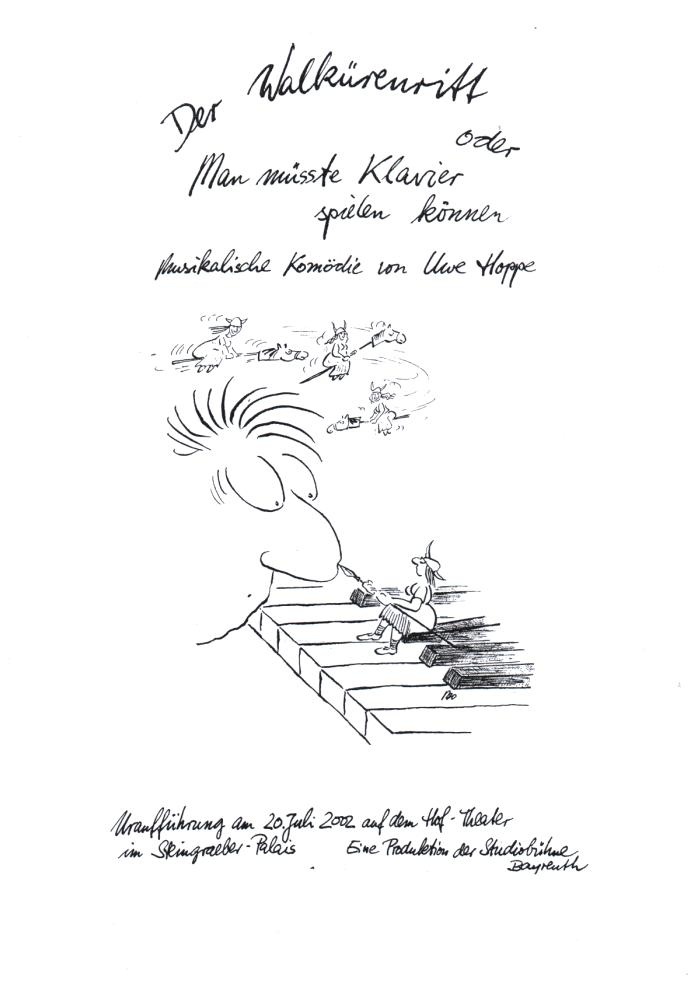 Der Walkürenritt
oder
Man müsste Klavier
spielen können
Musikalische Komödie von Uwe Hoppe
Uraufführung am 20. Juli 2002 auf dem Hof-Theater
im Steingraeber-Palais Eine Produktion der Studiobühne
Bayreuth